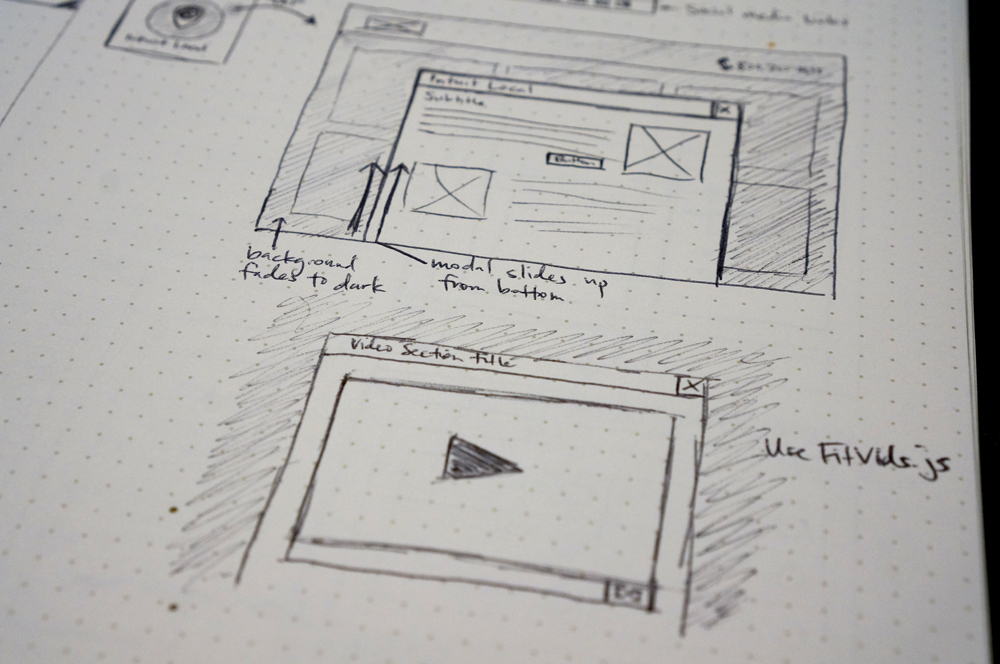 Social media links
Intuit Local
Intuit Local
Subtitle
Button
background
fades to dark
modal slides up
from bottom
Video Section Title
Use FitVids.js